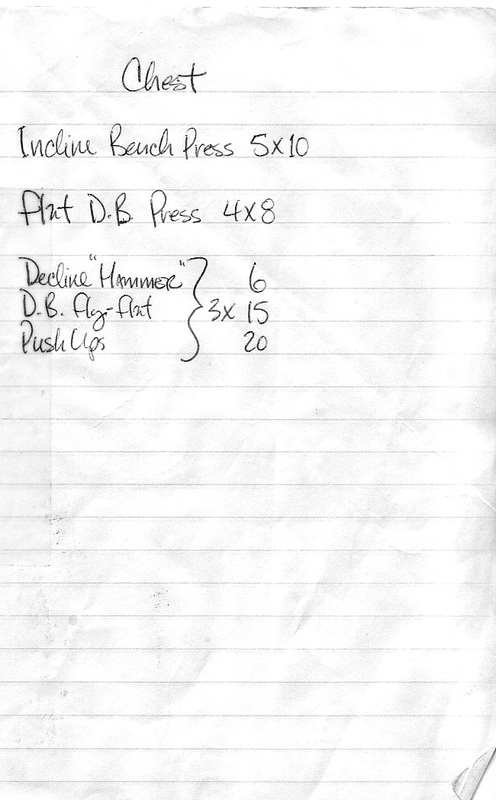 Chest
Incline Bench Press 5x10
Flat D.B Press 4x8
Decline "Hammer" 6
D.B. fly-flat 3x 15
Push Ups 20